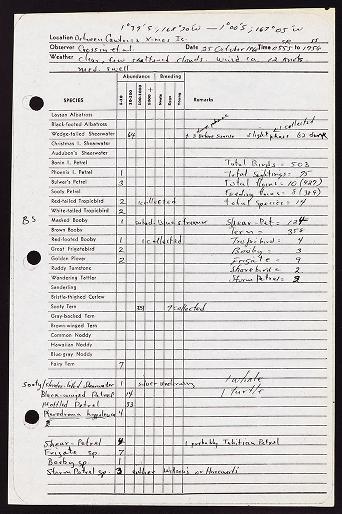 Location Between Canton & Xmas Is.
Observer Crossin et al. Date 25 October Time 0555 to 1954
Weather clear, few scattered clouds, wind ca 12 knots
med. swell
Abundance Breeding
SPECIES Nests Eggs Young Remarks
Laysan Albatross
Black-footed Albatross
Wedge-tailed Shearwater 64 collected
Christmas I. Shearwater
Audubon's Shearwater
Bonin I. Petrel Total Birds = 503
Phoenix I. Petrel 1 Total Sightings = 75
Bulwer's Petrel 3
Sooty Petrel
Red-tailed Tropicbird 2 1 collected Total species = 14
White-tailed Tropicbird 2
BS Masked Booby 1 Shear-Pet = 124
Brown Booby Tern = 358
Red-footed Booby 1 1 collected Tropicbird = 4
Great Frigatebird 2 Booby = 3
Golden Plover 2 Frigate = 9
Ruddy Turnstone Shorebird = 2
Wandering Tattler Storm Petrel = 3
Sanderling
Bristle-thighed Curlew
Sooty Tern 351 9 collected
Gray-backed Tern
Brown-winged Tern
Common Noddy
Hawaiian Noddy
Blue-gray Noddy
Fairy Tern 7
Sooty/slender-billed Shearwater 1 silver underwing 1 whale
Black-winged Petrel 14 1 turtle
Mottled Petrel 33
Pterodroma 4
Shear-Petrel 4 1 probably Tahitian Petrel
Frigate sp. 7
Booby sp. 1
Storm Petrel sp. 3 either Wilson's or Harcourt's